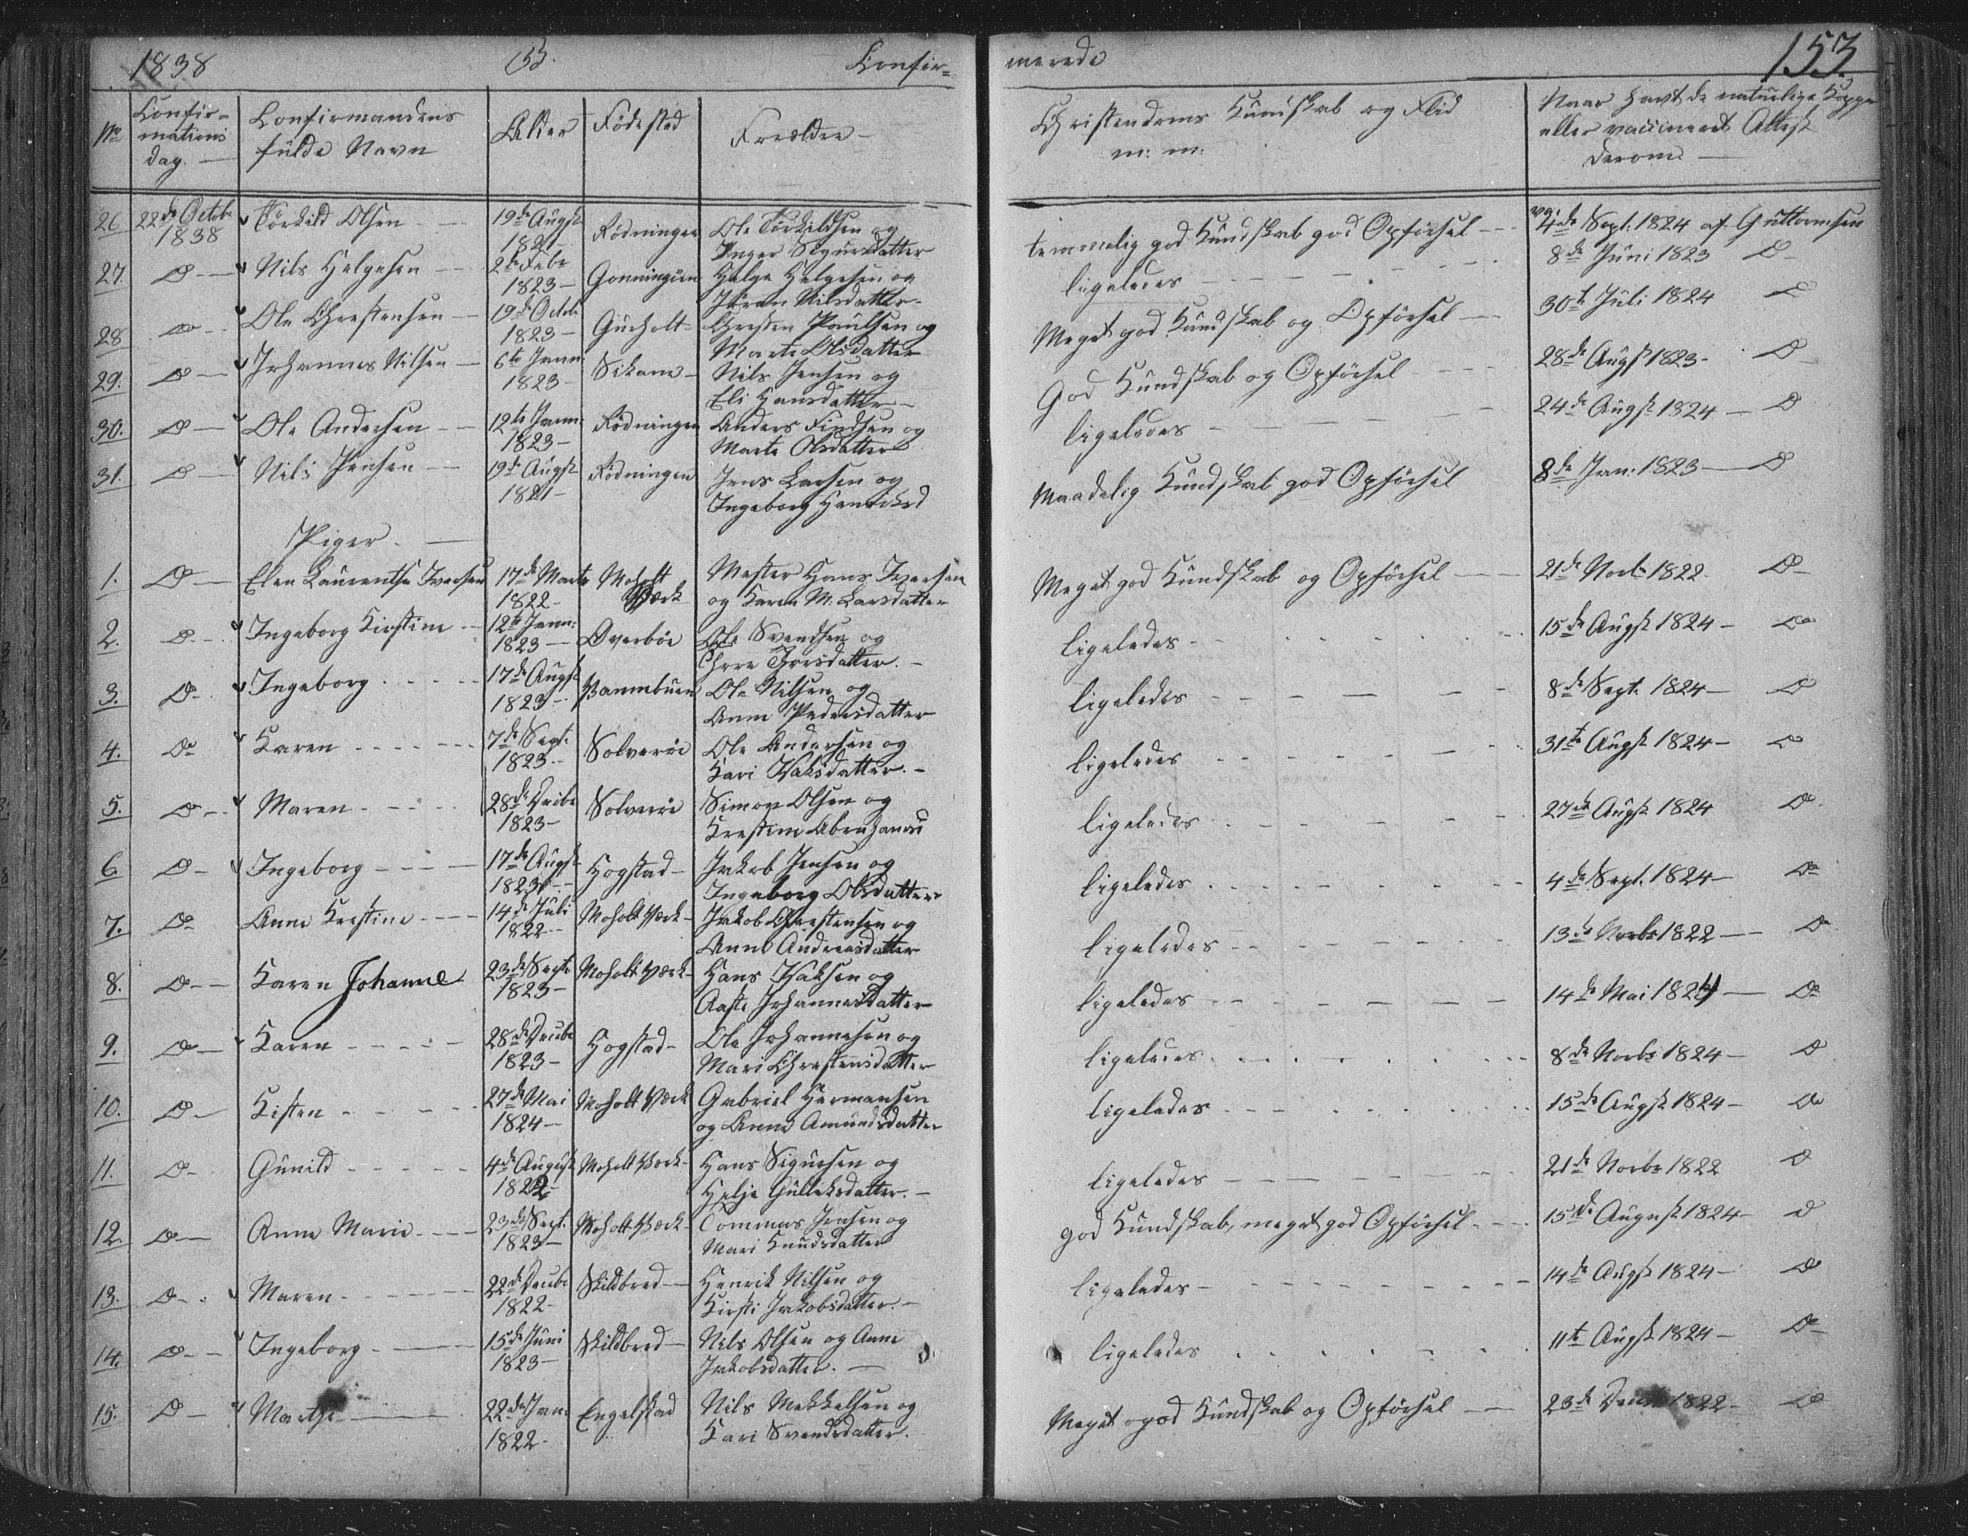 1838 153. Confir= merede 153.
No Confir= mations dag. Confirmandens fulde Navn Alder Fødested Forældre Christendoms Kundskab og Flid m: m: Naar havt de naturlige Kopper eller vaccineret Attest derom
26. 22de Octobr 1838 Törkild Olsen 19de Augst 1821 Rødningen Ole Törkildsen og
Inger Sigursdatter temmelig god Kundskab god Opförsel vac. 4de Sept. 1824 af Guttormsen
27. Do Nils Helgesen 2de Febr 1823 Helge Helgesen og
Jöran Nilsdatter ligeledes 8de Juni 1823 Do
28. Do Ole Chrestensen 19de Octobr 1823 Gurholt Chresten Paulsen og
Marte Olsdatter Meget god Kundskab og Opförsel 30te Juli 1824 Do
29. Do Johannes Nilsen 6te Janu: 1823 Nils Jensen og
Eli Hansdatter God Kundskab og Opförsel 28de Augst 1823 Do
30. Do Ole Andersen 12te Janu: 1823 Rødningen Anders Findsen og
Marte Olsdatter ligeledes 24de Augst 1824 Do
31. Do Nils Jensen 19de Augst 1821 Rødningen Jens Larsen og
Ingeborg Henriksd Maadelig Kundskab god Opförsel 8de Jan. 1823 Do
Piger.
1. Do Elen Laurentse Iversen 17de Marts 1822 Moholt Værk Mester Hans Iversen
og Karen M. Larsdatter Meget god Kundskab og Opförsel 21de Novbr 1822 Do
2. Do Ingeborg Kirstine 12te Janu: 1823 Øverböe Ole Svendsen og
datter. ligeledes 15de Augst 1824 Do
3. Do Ingeborg 17de Augst 1823 Ole Nilsen og
Anne Pedersdatter ligeledes 8de Sept. 1824 Do
4. Do Karen 7de Sept. 1823 Solveröe Ole Andersen og
Kari Isaksdatter. ligeledes 31te Augst 1824 Do
5. Do Maren 28de Decbr 1823 Solveröe Simon Olsen og
Krestine Abrahamsd ligeledes 27de Augst 1824 Do
6 Do Ingeborg 17de Augst 1823 Hogstad Jakob Jensen og
Ingeborg Olsdatter ligeledes 4de Sept. 1824 Do
7. Do Anne Kristine 14de Juli 1822 Moholt Værk Jakob Chrestensen og
Anne Andreasdatter ligeledes 13de Novbr 1822 Do
8. Do Karen Johanne 23de Septr 1823 Moholt Værk Hans Isaksen og
Aaste Johannesdatter ligeledes 14de Mai 1824 Do
9. Do Karen 28de Decbr 1823 Hogstad Ole Johannesen og
Mari Chrestensdatter ligeledes 8de Novbr 1824 Do
10. Do Kisten 27de Mai 1824 Moholt Værk Gabriel Hermansen
og Anne Amundsdatter ligeledes 15de Augst 1824 Do
11. Do Gunild 4de August 1822 Moholt Værk Hans Sigursen og
Helje Gulleksdatter. ligeledes 21de Novbr 1822 Do
12. Do Anne Marie 23de Sept. 1823 Moholt Værk Tommas Jensen og
Mari Knudsdatter god Kundskab, meget god Opförsel 15de August 1824 Do
13. Do Maren 22de Decbr 1822 Skildbred Henrik Nilsen og
Kirsti Jakobsdatter. ligeledes 14de Augst 1824 Do
14. Do Ingeborg 15de Juni 1823 Skildbred Nils Olsen og Anne
Jakobsdatter. ligeledes 11te Augst 1824 Do
15. Do Marthe 22de Jan. 1822 Engelstad Nils Mekkelsen og
Kari Svendsdatter. Meget god Kundskab og Opförsel 23de Decbr 1822 Do